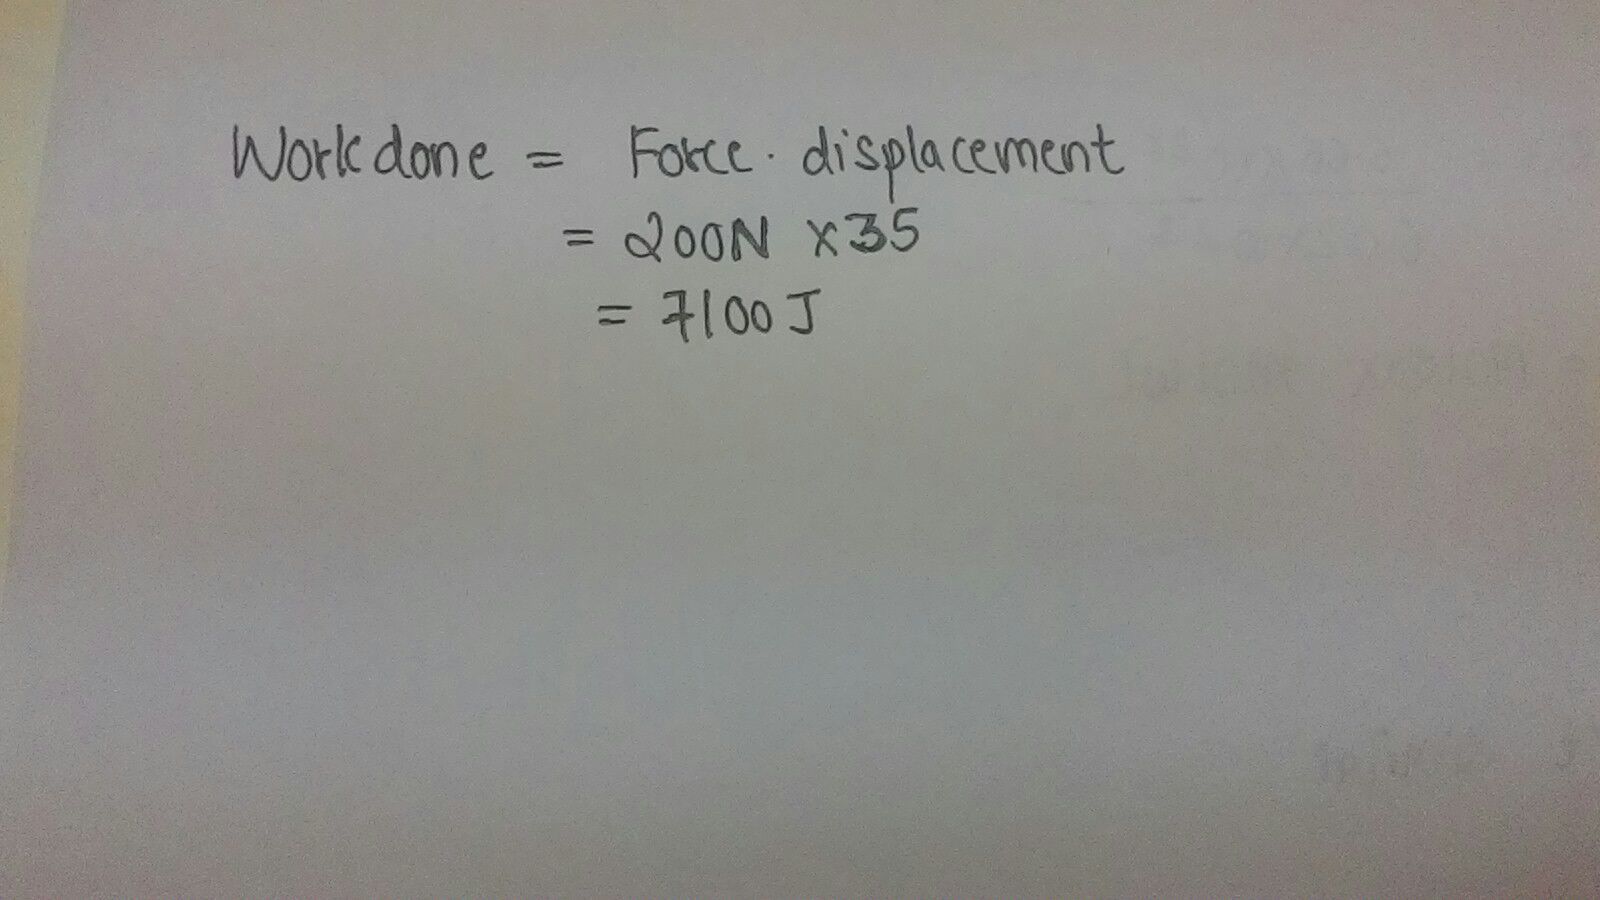 Work done = Force . displacement
= 200N x 35
= 7100 J